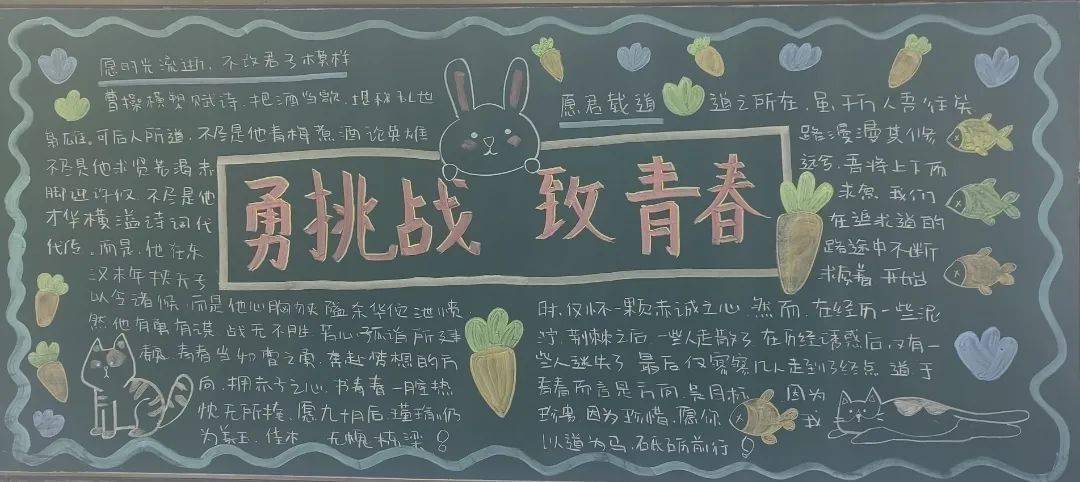 愿时光流逝，不改君子模样
曹操横槊赋诗，把酒当歌，堪称乱世
枭雄。可后人所道，不尽是他青梅煮酒论英雄
不尽是他求贤若渴赤
脚迎许攸 不尽是他
才华横溢诗词代
代传。而是，他在东
汉末年挟天子
以令诸侯，而是他心胸
然他有勇有谋 战无不胜，
青春当如曹之勇，奔赴梦想的方
向，拥赤子之心，书青春一腔热
忱无所掩、愿九十月后，瑾瑜仍
为美玉，佳木
勇挑战 致青春
愿君载道
道之所在，虽千万人吾往矣
路漫漫其修
远兮，吾将上下而
求索 我们
在追求道的
路途中不断
求索着 开始
时，仅怀一颗赤诚之心 然而，在经历一些泥
泞，荆棘之后，一些人走散了 在历经诱惑后，又有一
些人迷失了 最后仅寥寥几人走到了终点 道于
青春而言是方向，是目标 因为
珍贵 因为珍惜，愿你 我
以道为马，砥砺前行！